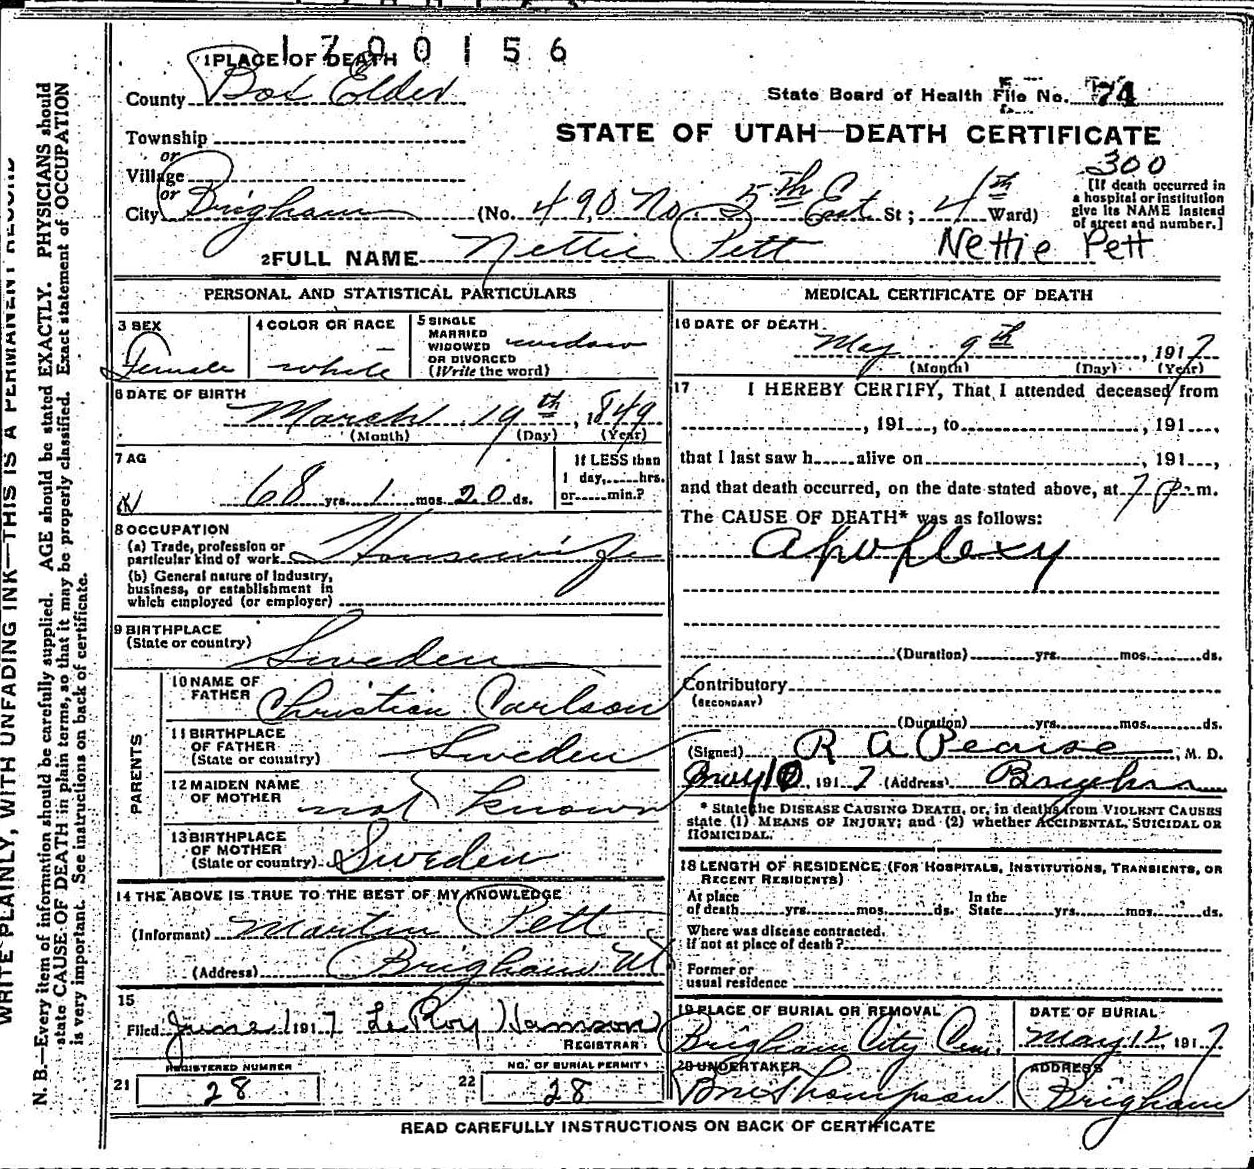 1700156
1 PLACE OF DEATH
County Box Elder
State Board of Health File No. 74
STATE OF UTAH—DEATH CERTIFICATE
Township
or
Village
or
City Brigham (No. 490 No. 5th East St; 4th Ward)
300
[If death occurred in
a hospital or institution
give its NAME instead
of street and number.]
2 FULL NAME Nettie Pett Nettie Pett
PERSONAL AND STATISTICAL PARTICULARS
3 SEX
Female
4 COLOR OR RACE
white
5 SINGLE
MARRIED
WIDOWED
OR DIVORCED
(Write the word)
widow
6 DATE OF BIRTH
March 19th, 1849
(Month) (Day) (Year)
7 AG
68 yrs. 1 mos. 20 ds.
If LESS than
1 day, hrs.
or min.?
8 OCCUPATION
(a) Trade, profession or
particular kind of work Housewife
(b) General nature of Industry,
business, or establishment in
which employed (or employer)
9 BIRTHPLACE
(State or country)
Sweden
PARENTS
10 NAME OF
FATHER
Christian Carlson
11 BIRTHPLACE
OF FATHER
(State or country)
Sweden
12 MAIDEN NAME
OF MOTHER
not known
13 BIRTHPLACE
OF MOTHER
(State or country)
Sweden
14 THE ABOVE IS TRUE TO THE BEST OF MY KNOWLEDGE
(Informant) Martin Pett
(Address) Brigham Ut
15
Filed June 1 1917 LeRoy
REGISTRAR
REGISTERED NUMBER
21 28
NO. OF BURIAL PERMIT
22 28
MEDICAL CERTIFICATE OF DEATH
16 DATE OF DEATH
May 9th, 1917
(Month) (Day) (Year)
17 I HEREBY CERTIFY, That I attended deceased from
, 191 , to , 191 ,
that I last saw h alive on , 191 ,
and that death occurred, on the date stated above, at 7 p. m.
The CAUSE OF DEATH* was as follows:
Apoplexy
(Duration) yrs. mos. ds.
Contributory
(SECONDARY)
(Duration) yrs. mos. ds.
(Signed) R A Pearse, M. D.
May 10, 1917 (Address) Brigham
* State the DISEASE CAUSING DEATH, or, in deaths from VIOLENT CAUSES
state (1) MEANS OF INJURY; and (2) whether ACCIDENTAL, SUICIDAL OR
HOMICIDAL.
18 LENGTH OF RESIDENCE (FOR HOSPITALS, INSTITUTIONS, TRANSIENTS, OR
RECENT RESIDENTS)
At place
of death yrs. mos. ds.
In the
State yrs. mos. ds.
Where was disease contracted.
if not at place of death?
Former or
usual residence
19 PLACE OF BURIAL OR REMOVAL
Brigham City Cem.
DATE OF BURIAL
May 12, 1917
20 UNDERTAKER
Thompson
ADDRESS
Brigham
READ CAREFULLY INSTRUCTIONS ON BACK OF CERTIFICATE
WRITE PLAINLY, WITH UNFADING INK—THIS IS A PERMANENT RECORD
N. B.—Every item of information should be carefully supplied. AGE should be stated EXACTLY. PHYSICIANS should
state CAUSE OF DEATH in plain terms, so that it may be properly classified. Exact statement of OCCUPATION
is very important. See instructions on back of certificate.